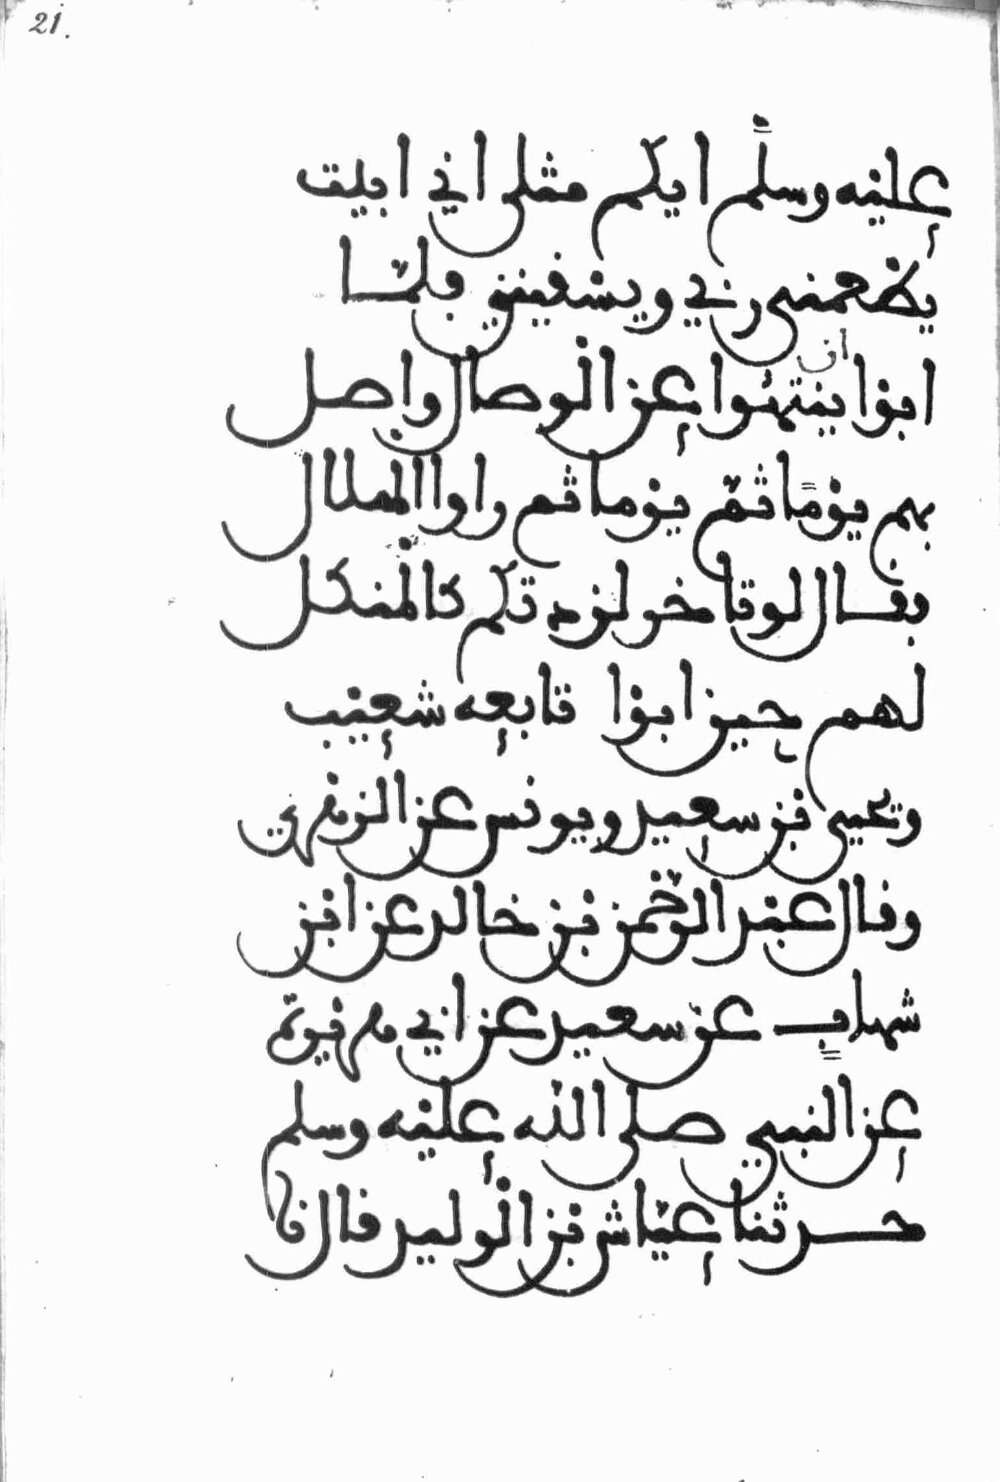 21.
عليه وسلم ايكم مثلي اني ابيت
يطعمني ربي ويسقيني فلما
ابوا ان ينتهوا عن الوصال واصل
بهم يوما ثم يوما ثم راوا الهلال
فقال لو تاخر لزدتكم كالمنكل
لهم حين ابوا تابعه شعيب
ويحيى بن سعيد ويونس عن الزهري
وقال عبد الرحمن بن خالد عن ابن
شهاب عن سعيد عن ابي هريرة
عن النبي صلى الله عليه وسلم
حدثنا عياش بن الوليد قال نا